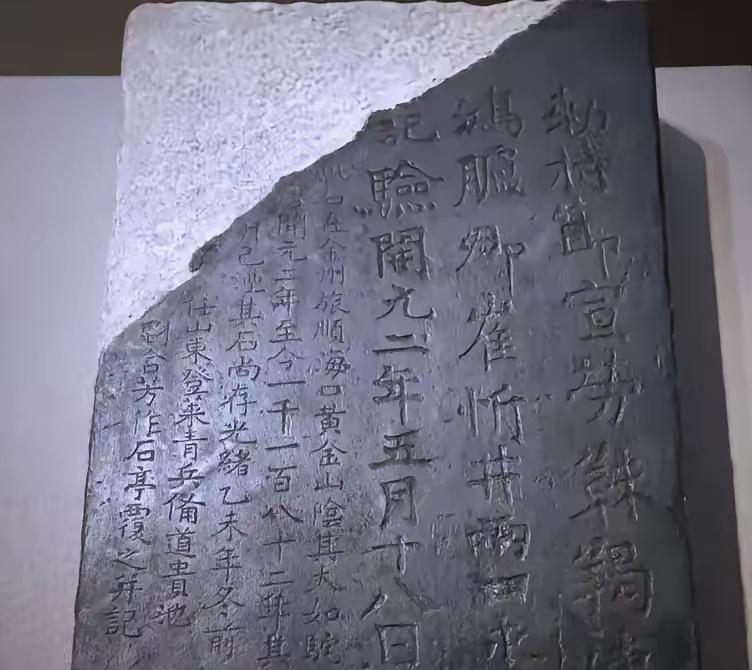 勅持節宣勞靺羯
鴻臚卿崔忻井兩口永
記驗開元二年五月十八日
石在金州旅順海口黃金山陰其大如駝
開元二年至今一千一百八十二年其
井已湮其石尚存光緒乙未年冬前
任山東登萊青兵備道貴池
劉含芳作石亭覆之并記